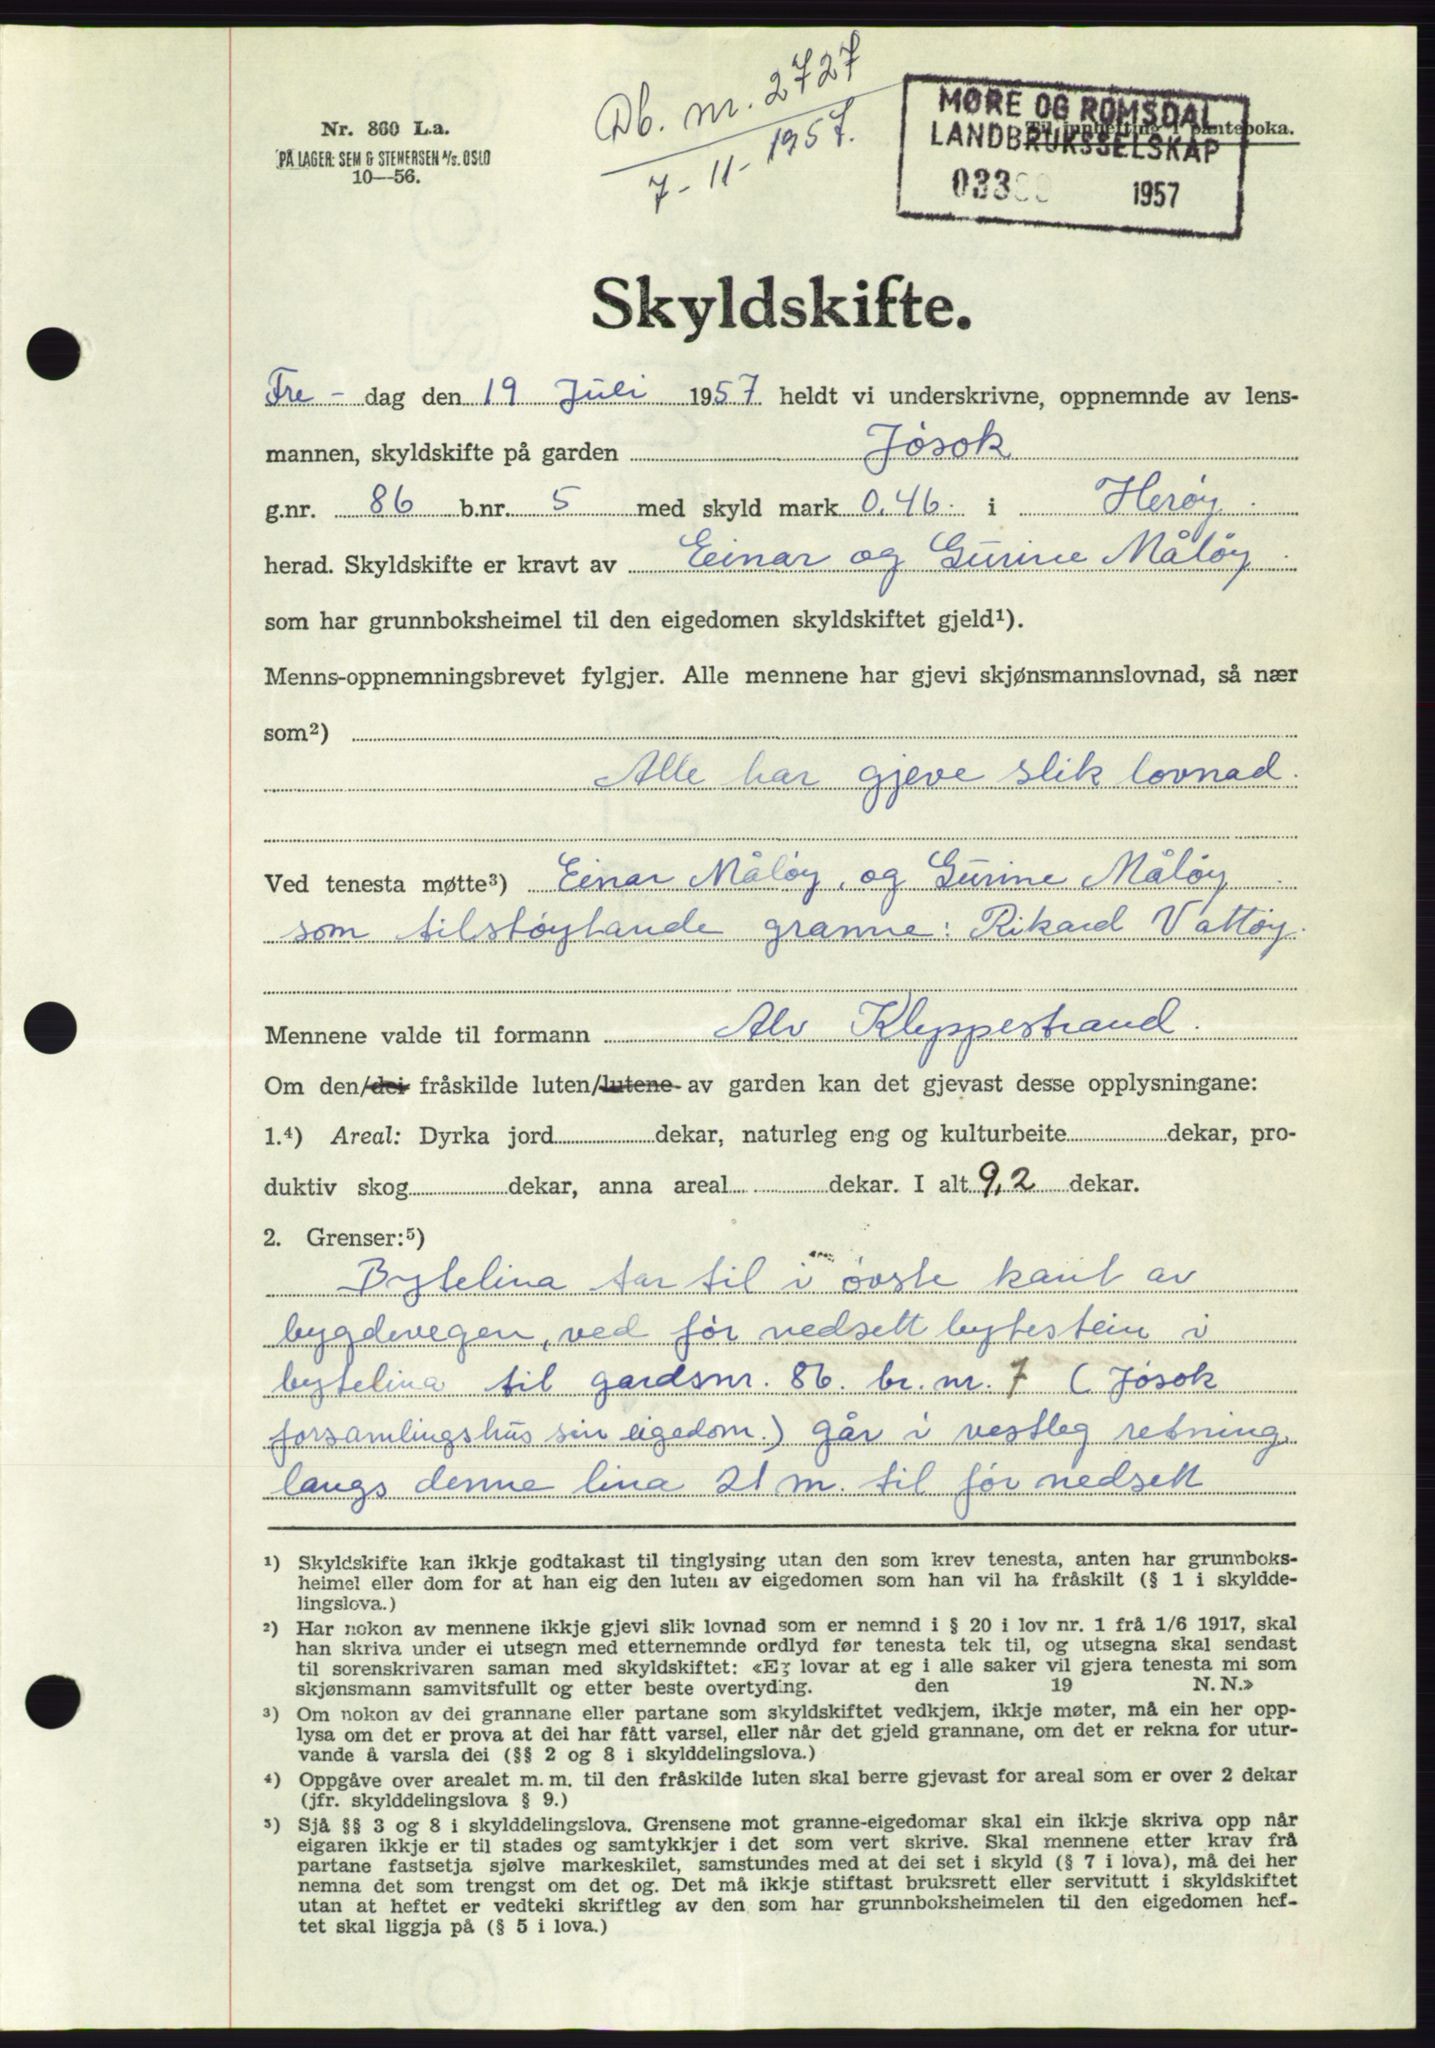 Db. nr. 2727
7-11-1957.
Nr. 860 L.a.
PÅ LAGER: SEM & STENERSEN A/S. OSLO
10—56.
Til innhefting i panteboka.
MØRE OG ROMSDAL
LANDBRUKSSELSKAP
1957
Skyldskifte.
Fre - dag den 19 Juli 1957 heldt vi underskrivne, oppnemnde av lens-
mannen, skyldskifte på garden Jøsok
g.nr. 86 b.nr. 5 med skyld mark 0,46. i Herøy.
herad. Skyldskifte er kravt av Einar og Gurine Måløy.
som har grunnboksheimel til den eigedomen skyldskiftet gjeld¹).
Menns-oppnemningsbrevet fylgjer. Alle mennene har gjevi skjønsmannslovnad, så nær
som²)
Alle har gjeve slik lovnad.
Ved tenesta møtte³) Einar Måløy, og Gurine Måløy.
som tilstøytande granne: Rikard Vattøy.
Mennene valde til formann Alv Kleppestrand.
Om den/dei fråskilde luten/lutene av garden kan det gjevast desse opplysningane:
1.⁴) Areal: Dyrka jord dekar, naturleg eng og kulturbeite dekar, pro-
duktiv skog dekar, anna areal dekar. I alt 9,2 dekar.
2. Grenser:⁵)
Bytelina tar til i øvste kant av
bygdevegen, ved før nedsett bytestein i
bytelina til gardsnr. 86. br. nr. 7 (Jøsok
forsamlingshus sin eigedom.) går i vestleg retning,
langs denne lina 21 m. til før nedsett
¹) Skyldskifte kan ikkje godtakast til tinglysing utan den som krev tenesta, anten har grunnboks-
heimel eller dom for at han eig den luten av eigedomen som han vil ha fråskilt (§ 1 i skyldde-
lingslova.)
²) Har nokon av mennene ikkje gjevi slik lovnad som er nemnd i § 20 i lov nr. 1 frå 1/6 1917, skal
han skriva under ei utsegn med etternemnde ordlyd før tenesta tek til, og utsegna skal sendast
til sorenskrivaren saman med skyldskiftet: «Eg lovar at eg i alle saker vil gjera tenesta mi som
skjønsmann samvitsfullt og etter beste overtyding. den 19 N. N.»
³) Om nokon av dei grannane eller partane som skyldskiftet vedkjem, ikkje møter, må ein her opp-
lysa om det er prova at dei har fått varsel, eller når det gjeld grannane, om det er rekna for utur-
vande å varsla dei (§§ 2 og 8 i skylddelingslova.)
⁴) Oppgåve over arealet m. m. til den fråskilde luten skal berre gjevast for areal som er over 2 dekar
(jfr. skylddelingslova § 9.)
⁵) Sjå §§ 3 og 8 i skylddelingslova. Grensene mot granne-eigedomar skal ein ikkje skriva opp når
eigaren ikkje er til stades og samtykkjer i det som vert skrive. Skal mennene etter krav frå
partane fastsetja sjølve markeskilet, samstundes med at dei set i skyld (§ 7 i lova), må dei her
nemna det som trengst om det og. Det må ikkje stiftast bruksrett eller servitutt i skyldskiftet
utan at heftet er vedteki skriftleg av den som har grunnboksheimelen til den eigedomen hef-
tet skal liggja på (§ 5 i lova.)